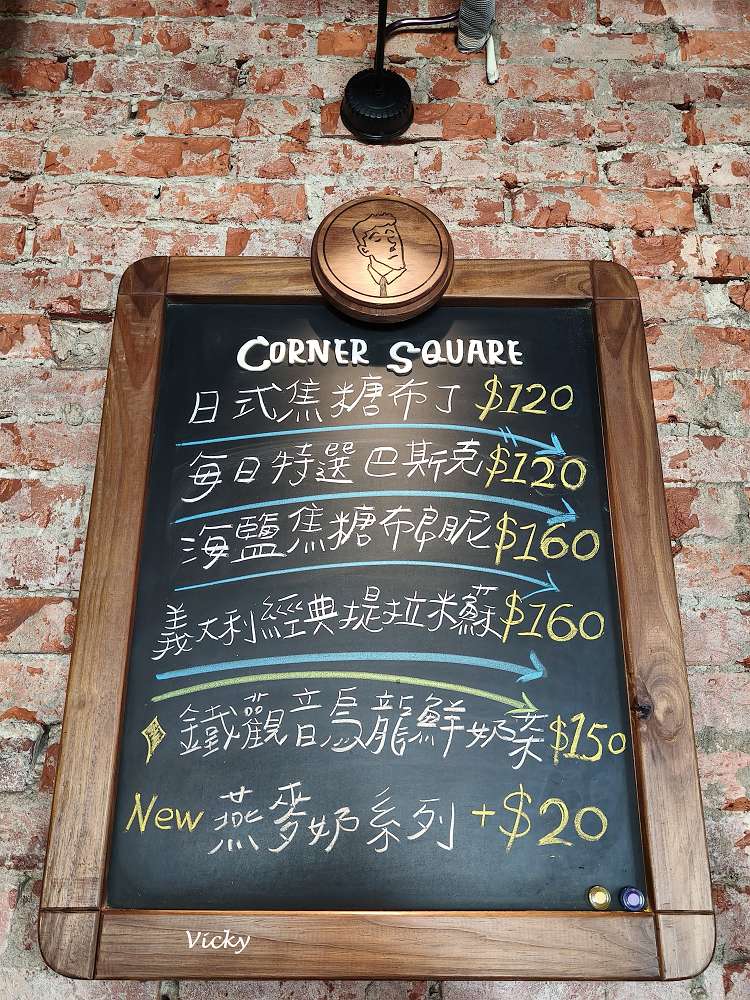 CORNER SQUARE
日式焦糖布丁 $120
每日特選巴斯克 $120
海鹽焦糖布朗尼 $160
義大利經典提拉米蘇 $160
鐵觀音烏龍鮮奶茶 $150
New 燕麥奶系列 +$20
Vicky